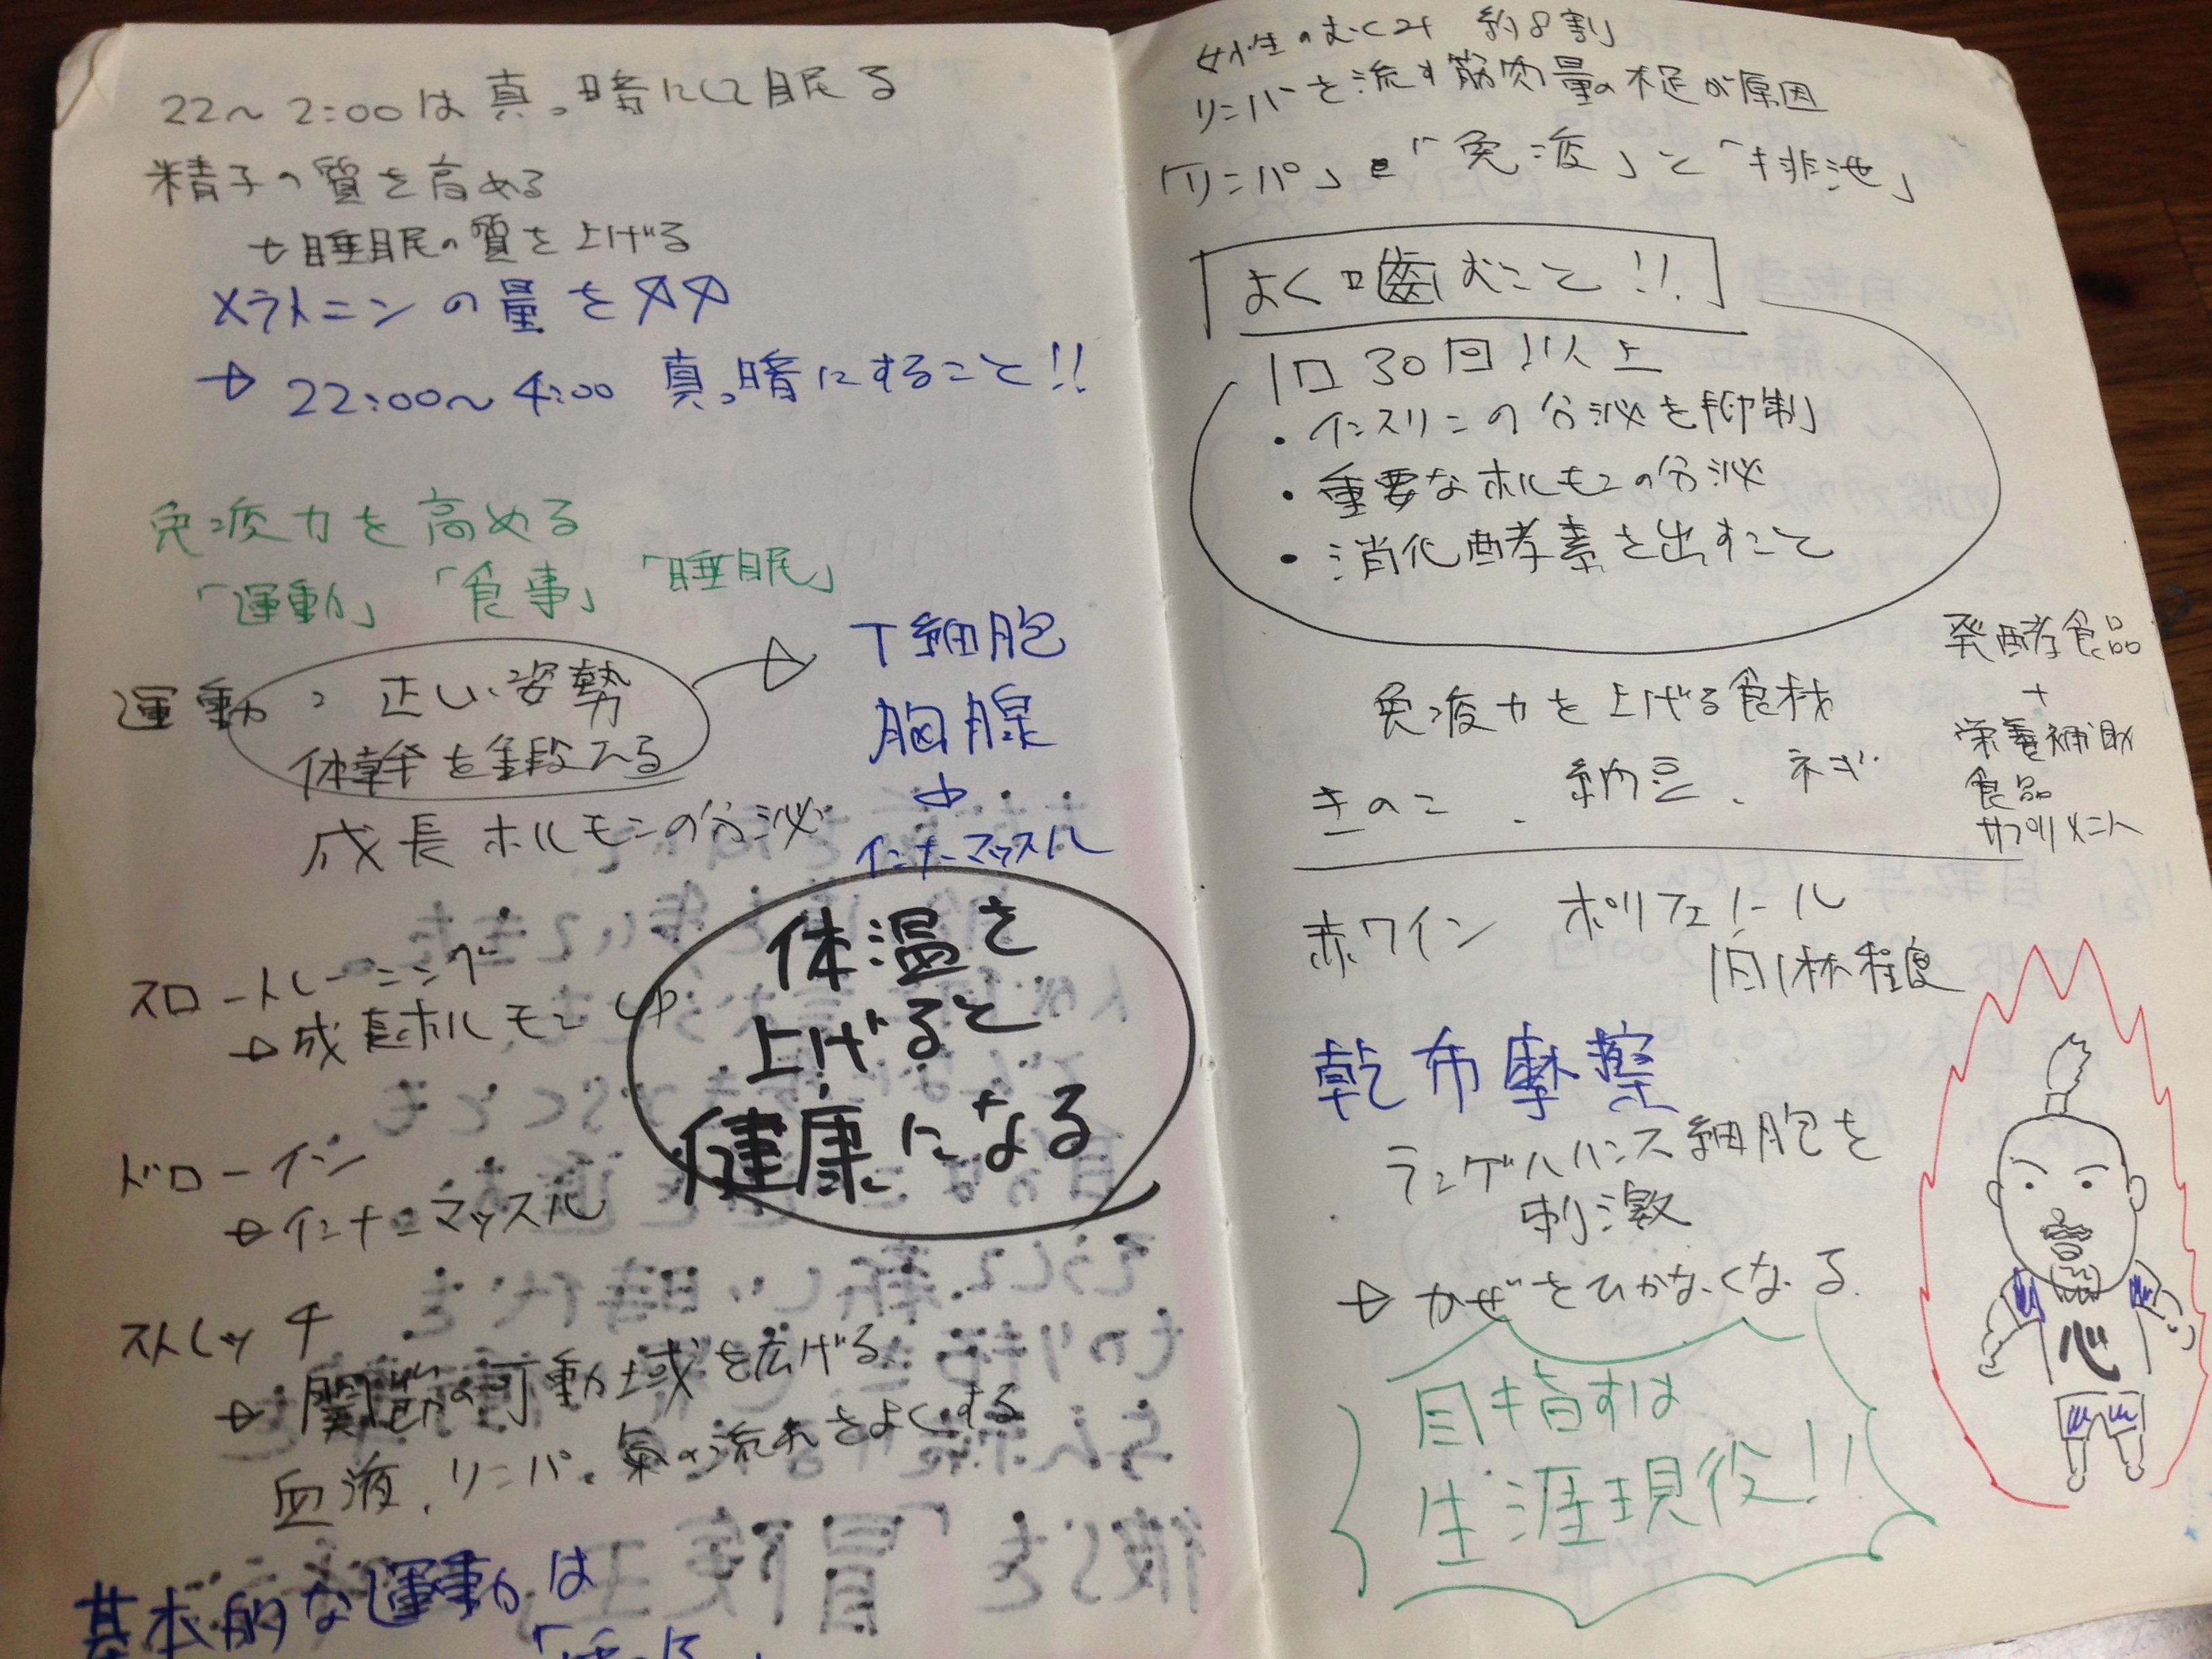 22〜2:00は真っ暗にして眠る
精子の質を高める
→睡眠の質を上げる
メラトニンの量を
→ 22:00〜4:00 真っ暗にすること!!
免疫力を高める
「運動」「食事」「睡眠」
運動: 正しい姿勢
体幹を鍛える
成長ホルモンの分泌
T細胞
胸腺
↓
インナーマッスル
スロートレーニング
→成長ホルモン UP
体温を
上げると
健康になる
ドローイン
→インナーマッスル
ストレッチ
→ 関節の可動域を広げる
血液、リンパ、氣の流れをよくする
基本的な運動は
女性のむくみ 約8割
リンパを流す筋肉量の不足が原因
「リンパ」=「免疫」と「排泄」
よく噛むこと!!
1口30回以上
・インスリンの分泌を抑制
・重要なホルモンの分泌
・消化酵素を出すこと
免疫力を上げる食材
きのこ、納豆、ネギ
発酵食品
+
栄養補助
食品
サプリメント
赤ワイン ポリフェノール
1日1杯程度
乾布摩擦
ランゲルハンス細胞を
刺激
→ かぜをひかなくなる
目指すは
生涯現役!!
心